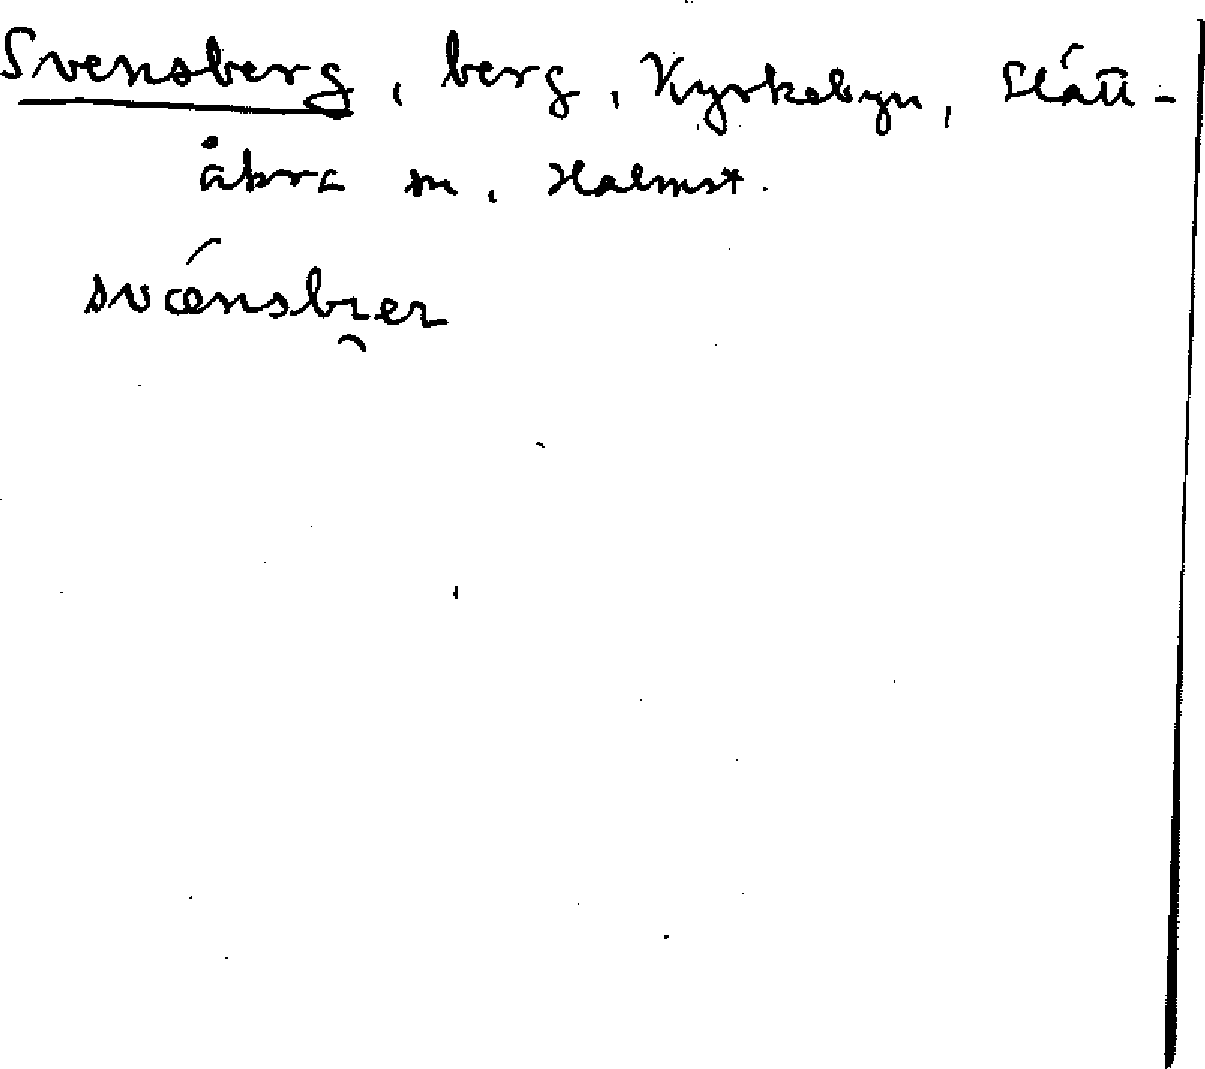 Svensberg, berg, Kyrkobyn, Slätt-
åkra sn, Halmst.
svǽnsbɪ̯er